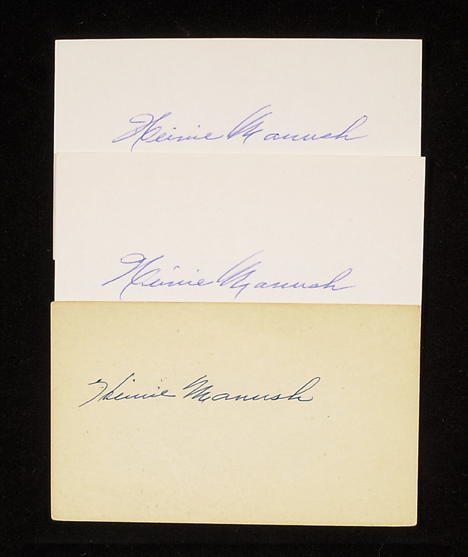 Heinie Manush
Heinie Manush
Heinie Manush